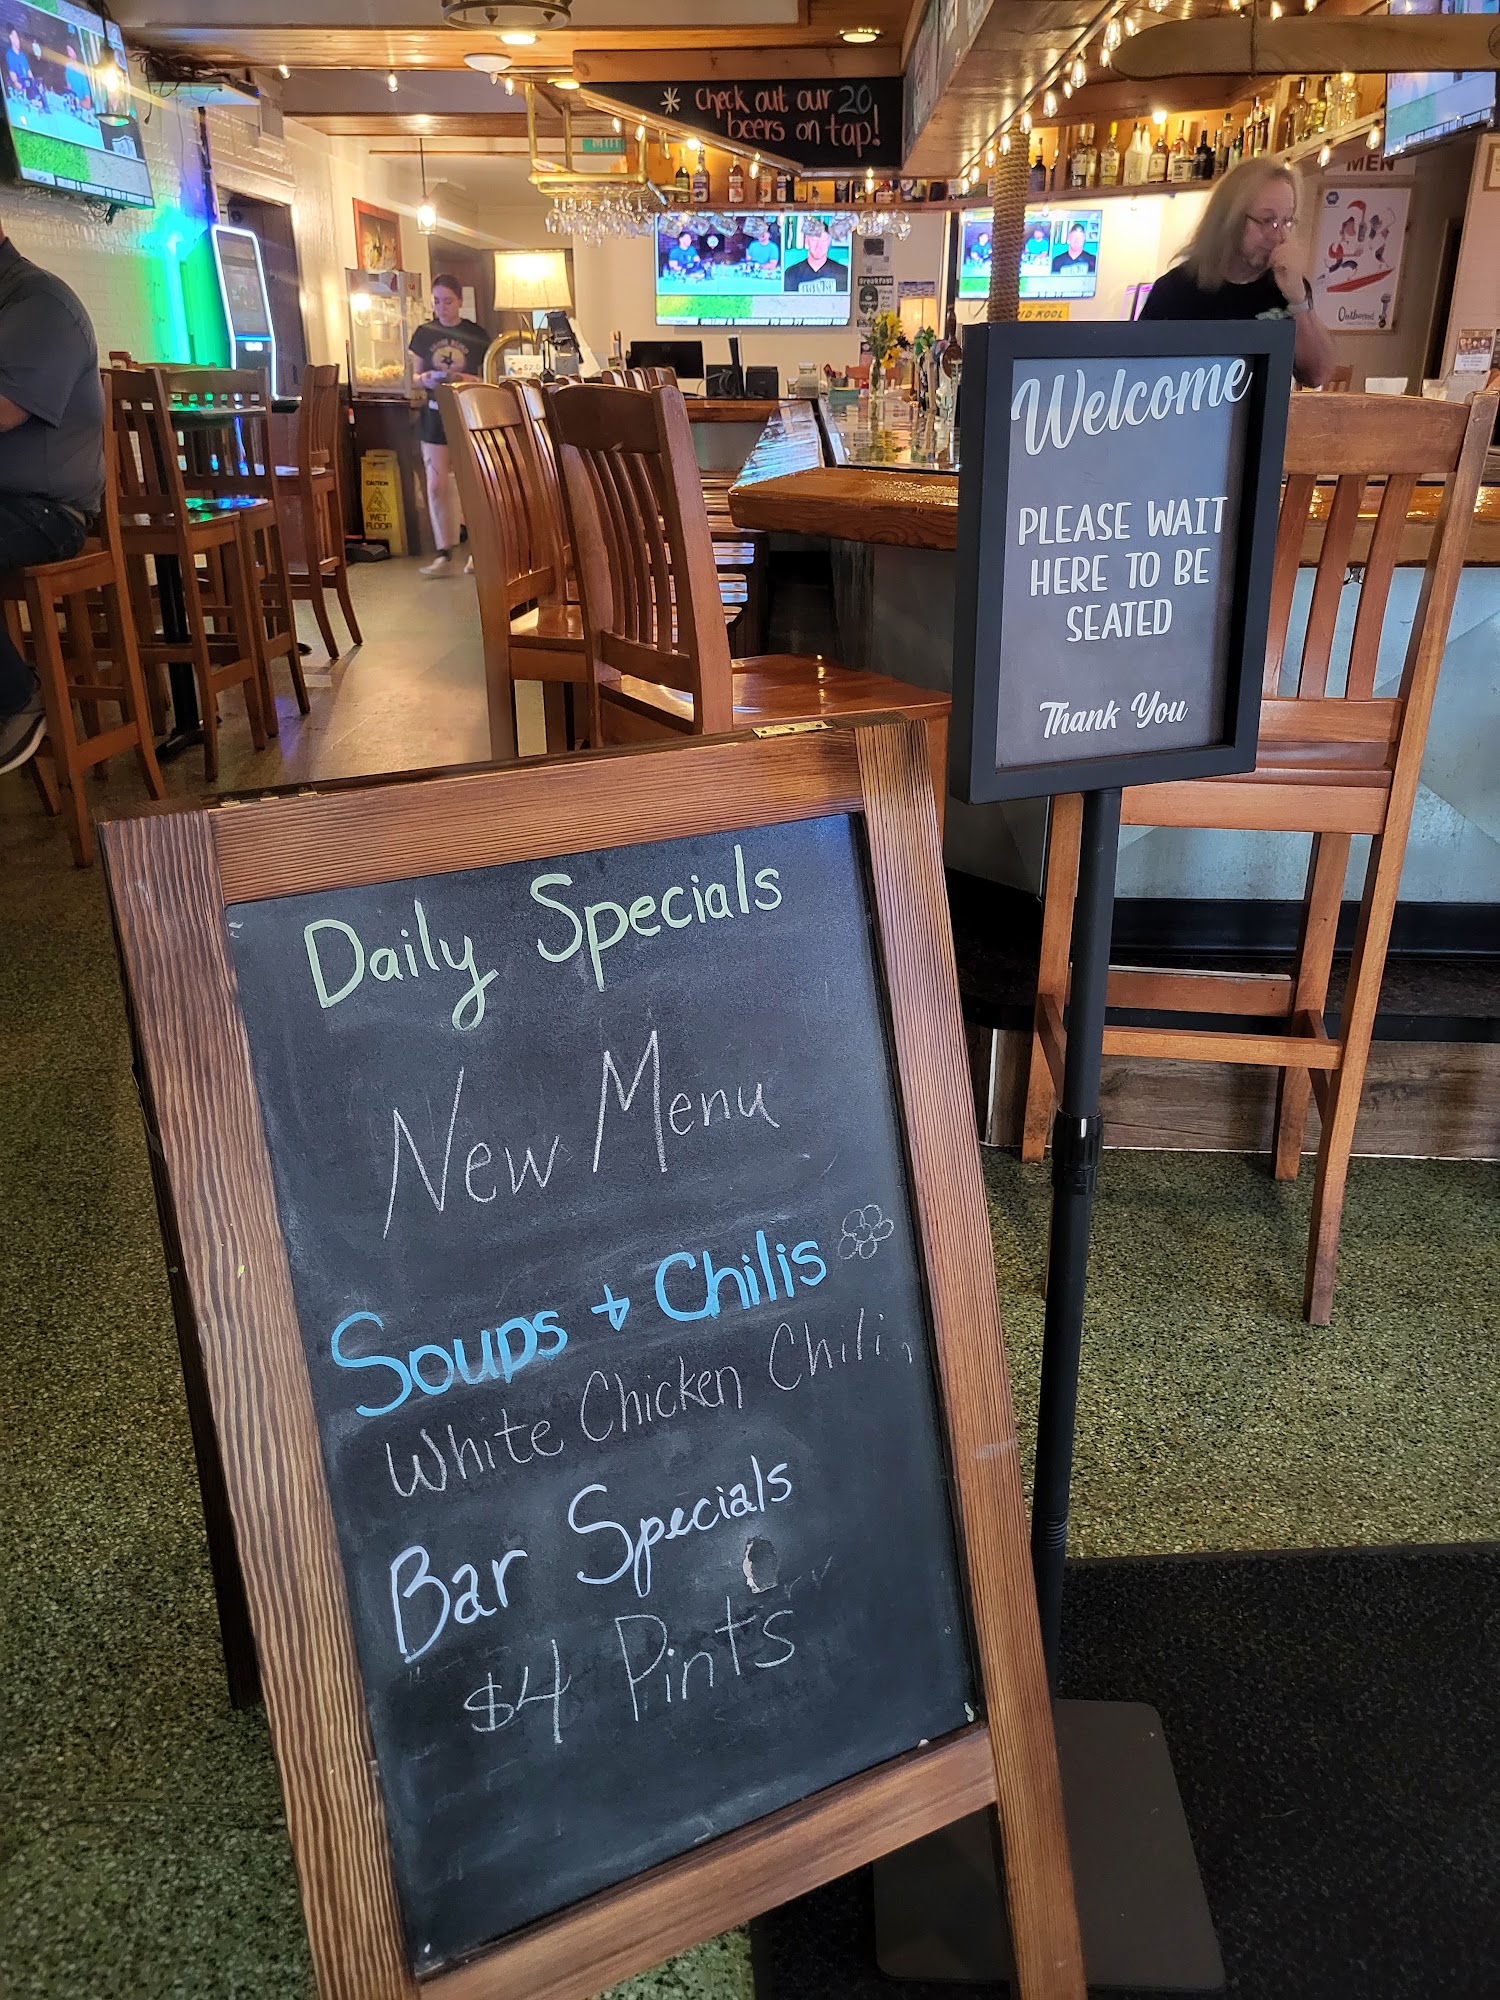 * Check out our 20
beers on tap!
MEN
Breakfast
Outbound
CAUTION
WET
FLOOR
Welcome
PLEASE WAIT
HERE TO BE
SEATED
Thank You
Daily Specials
New Menu
Soups + Chilis
White Chicken Chili,
Bar Specials
$4 Pints